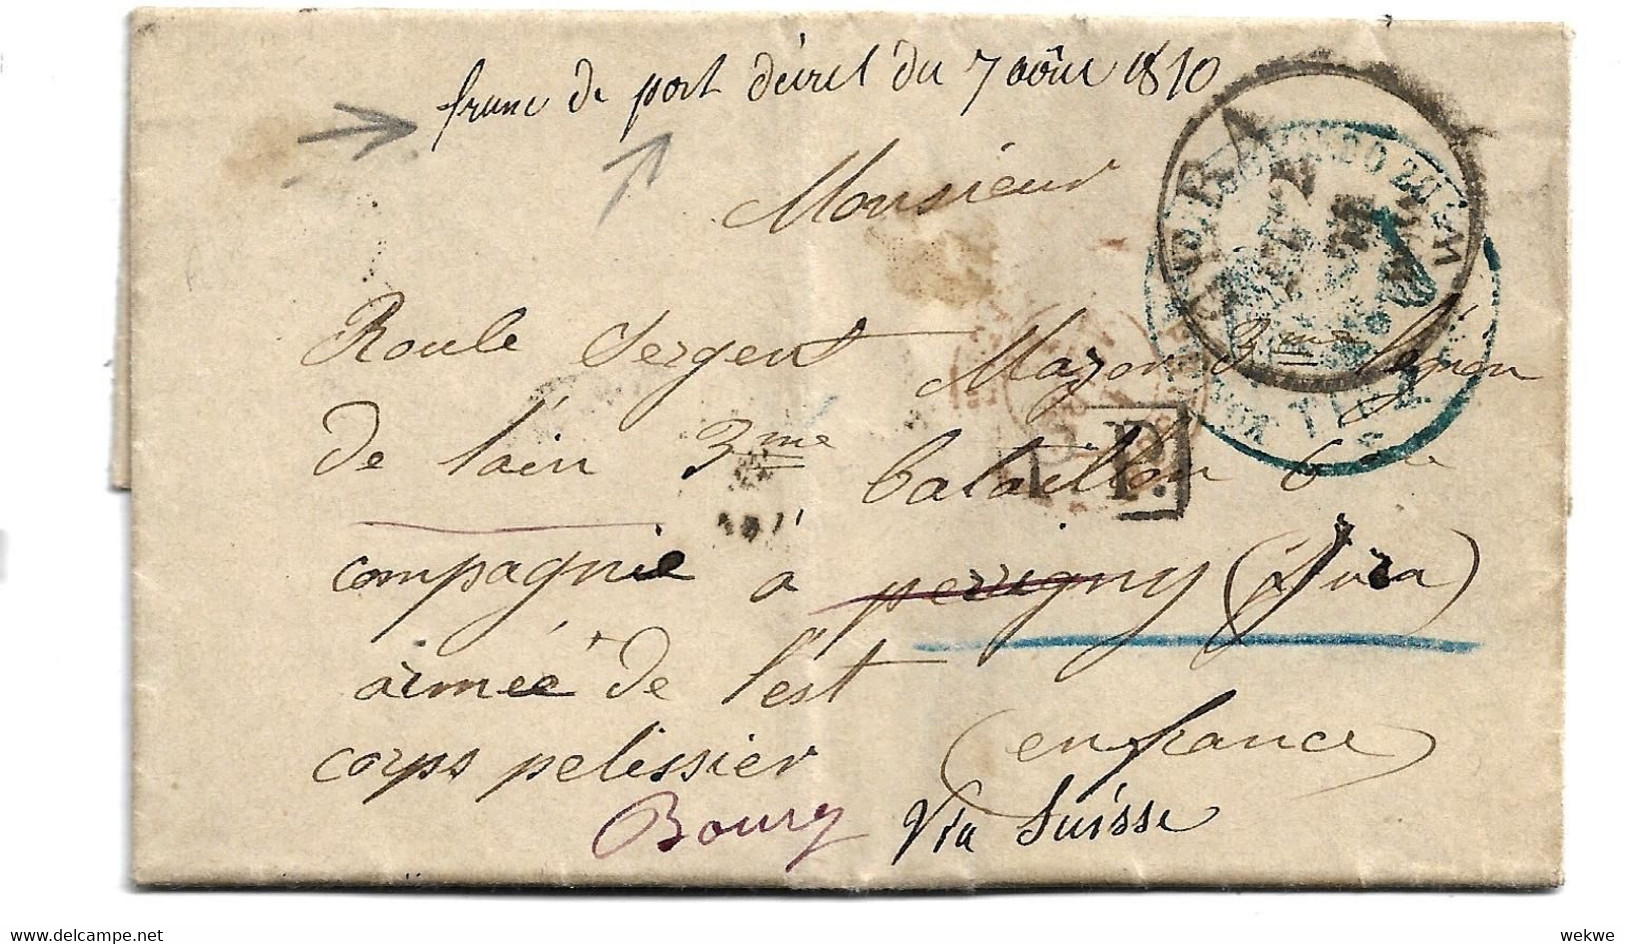 franc de port décret du 7 août 1870
Monsieur
Roule Sergent Major 3me légion
de l'ain 3me bataillon 6me
compagnie à perrigny (Jura)
armée de l'est
corps pelissier (en france)
Bourg Via Suisse
P.P.
wekwe